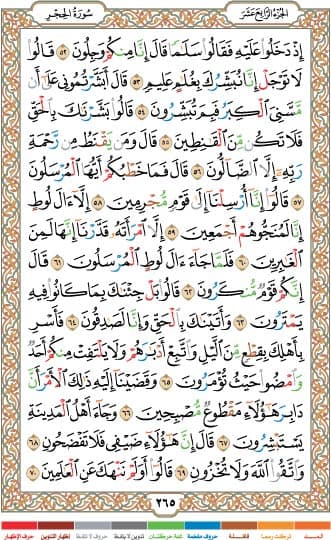 سُورَةُ الحِجْرِ
الجُزْءُ الرَّابِعَ عَشَرَ
إِذْ دَخَلُوا۟ عَلَيْهِ فَقَالُوا۟ سَلَٰمًا قَالَ إِنَّا مِنكُمْ وَجِلُونَ ٥٢ قَالُوا۟
لَا تَوْجَلْ إِنَّا نُبَشِّرُكَ بِغُلَٰمٍ عَلِيمٍ ٥٣ قَالَ أَبَشَّرْتُمُونِى عَلَىٰٓ أَن
مَّسَّنِىَ ٱلْكِبَرُ فَبِمَ تُبَشِّرُونَ ٥٤ قَالُوا۟ بَشَّرْنَٰكَ بِٱلْحَقِّ
فَلَا تَكُن مِّنَ ٱلْقَٰنِطِينَ ٥٥ قَالَ وَمَن يَقْنَطُ مِن رَّحْمَةِ
رَبِّهِۦٓ إِلَّا ٱلضَّآلُّونَ ٥٦ قَالَ فَمَا خَطْبُكُمْ أَيُّهَا ٱلْمُرْسَلُونَ
٥٧ قَالُوٓا۟ إِنَّآ أُرْسِلْنَآ إِلَىٰ قَوْمٍ مُّجْرِمِينَ ٥٨ إِلَّآ ءَالَ لُوطٍ
إِنَّا لَمُنَجُّوهُمْ أَجْمَعِينَ ٥٩ إِلَّا ٱمْرَأَتَهُۥ قَدَّرْنَآ إِنَّهَا لَمِنَ
ٱلْغَٰبِرِينَ ٦٠ فَلَمَّا جَآءَ ءَالَ لُوطٍ ٱلْمُرْسَلُونَ ٦١ قَالَ
إِنَّكُمْ قَوْمٌ مُّنكَرُونَ ٦٢ قَالُوا۟ بَلْ جِئْنَٰكَ بِمَا كَانُوا۟ فِيهِ
يَمْتَرُونَ ٦٣ وَأَتَيْنَٰكَ بِٱلْحَقِّ وَإِنَّا لَصَٰدِقُونَ ٦٤ فَأَسْرِ
بِأَهْلِكَ بِقِطْعٍ مِّنَ ٱلَّيْلِ وَٱتَّبِعْ أَدْبَٰرَهُمْ وَلَا يَلْتَفِتْ مِنكُمْ أَحَدٌ
وَٱمْضُوا۟ حَيْثُ تُؤْمَرُونَ ٦٥ وَقَضَيْنَآ إِلَيْهِ ذَٰلِكَ ٱلْأَمْرَ أَنَّ
دَابِرَ هَٰٓؤُلَآءِ مَقْطُوعٌ مُّصْبِحِينَ ٦٦ وَجَآءَ أَهْلُ ٱلْمَدِينَةِ
يَسْتَبْشِرُونَ ٦٧ قَالَ إِنَّ هَٰٓؤُلَآءِ ضَيْفِى فَلَا تَفْضَحُونِ ٦٨
وَٱتَّقُوا۟ ٱللَّهَ وَلَا تُخْزُونِ ٦٩ قَالُوٓا۟ أَوَلَمْ نَنْهَكَ عَنِ ٱلْعَٰلَمِينَ ٧٠
٢٦٥